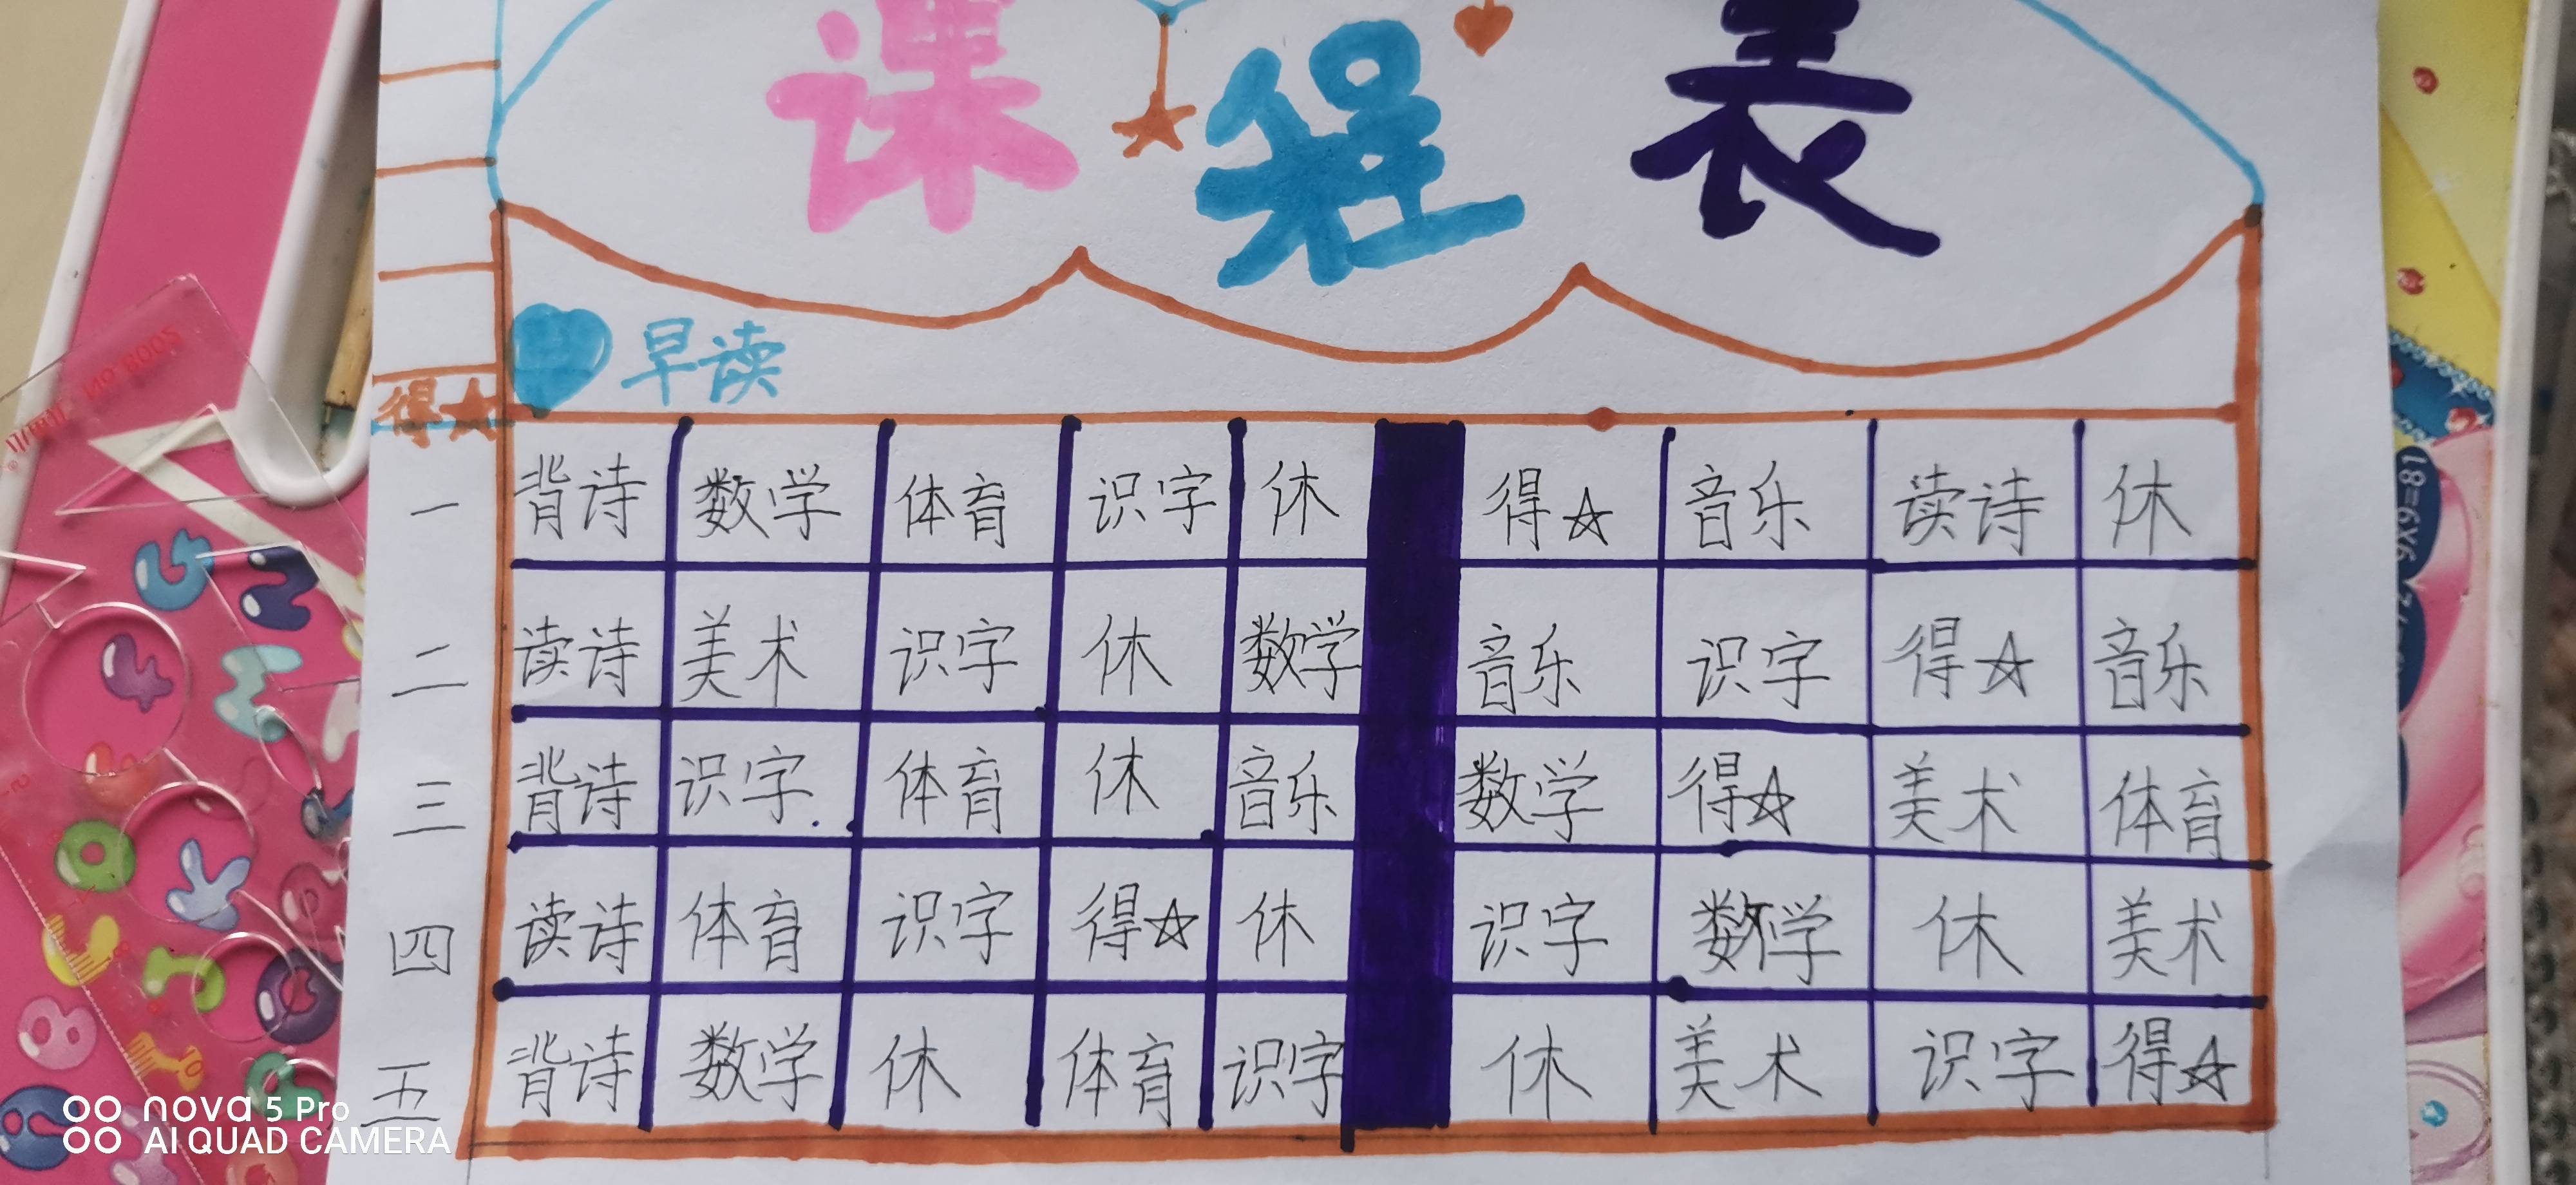 课程表
早读
得☆
一 背诗 数学 体育 识字 休 得☆ 音乐 读诗 休
二 读诗 美术 识字 休 数学 音乐 识字 得☆ 音乐
三 背诗 识字. 体育 休 音乐 数学 得☆ 美术 体育
四 读诗 体育 识字 得☆ 休 识字 数学 休 美术
五 背诗 数学 休 体育 识字 休 美术 识字 得☆
nova 5 Pro
AI QUAD CAMERA
18=6×6